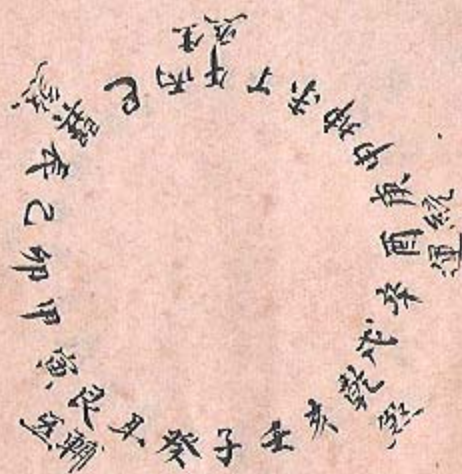 子
癸
丑
艮
寅
甲
卯
乙
辰
巽
巳
丙
午
丁
未
坤
申
庚
酉
辛
戌
乾
亥
壬
輔
運